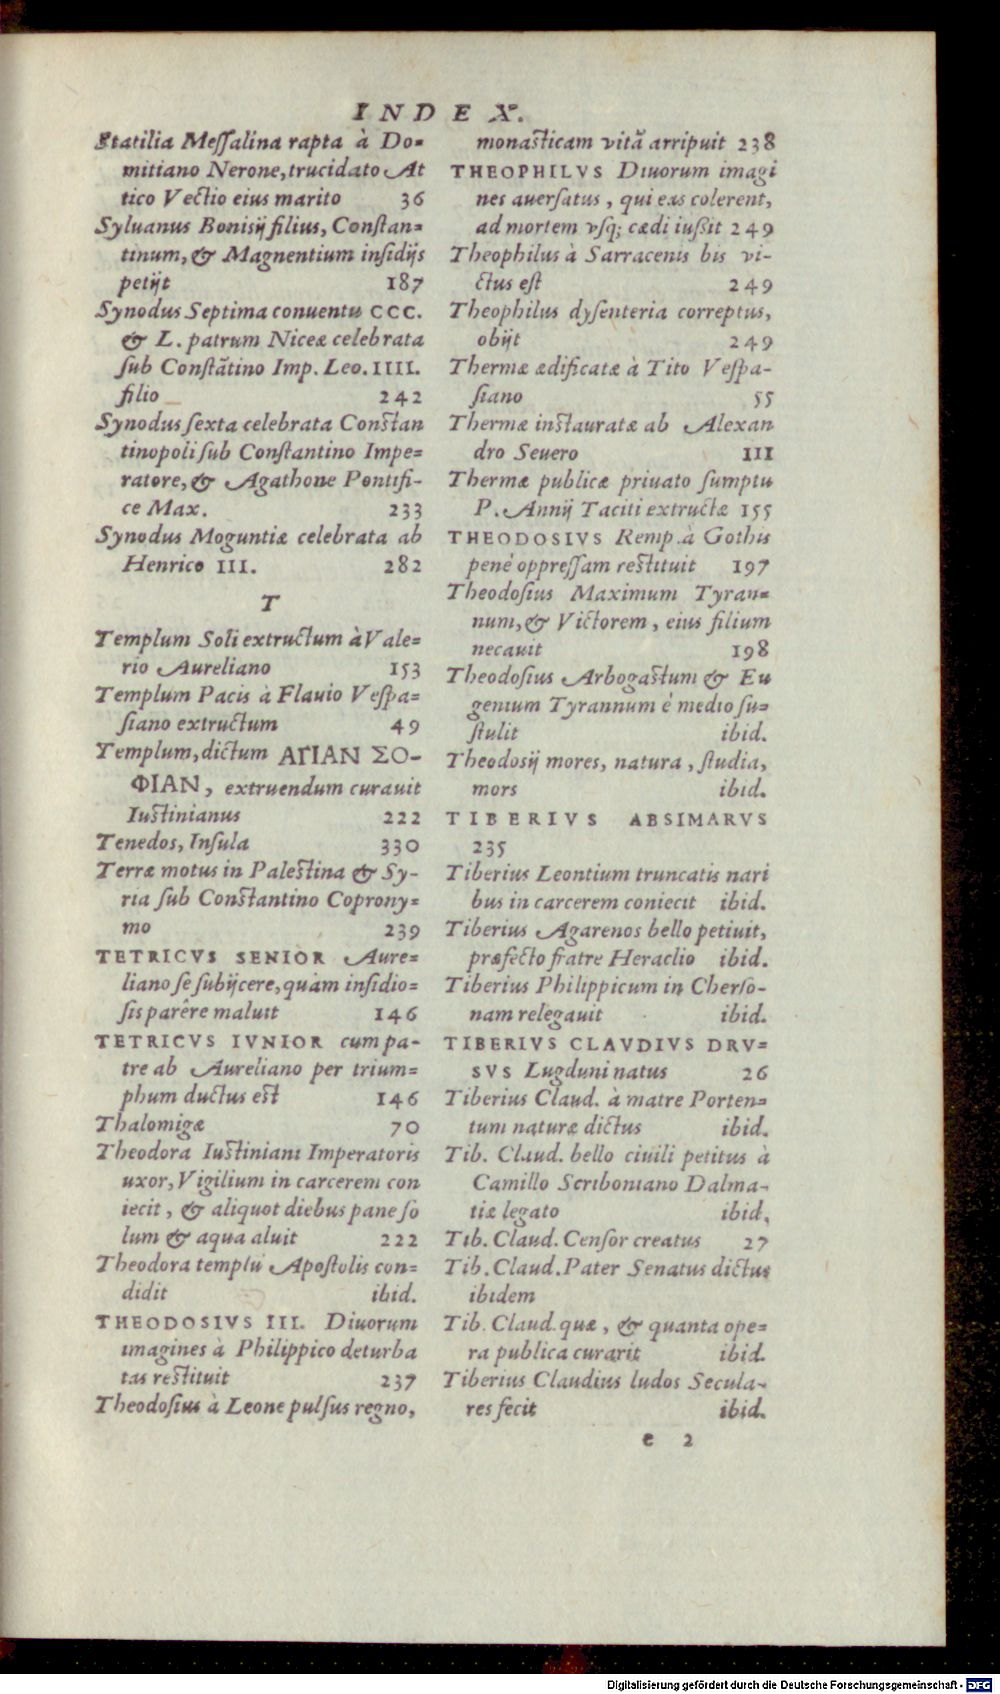 INDEX.
Statilia Meſſalina rapta à Do=
mitiano Nerone, trucidato At
tico Vectio eius marito 36
Syluanus Bonisij filius, Conſtan=
tinum, & Magnentium inſidijs
petijt 187
Synodus Septima conuentu CCC.
& L. patrum Niceæ celebrata
ſub Conſtãtino Imp. Leo. IIII.
filio 242
Synodus ſexta celebrata Conſtan
tinopoli ſub Conſtantino Impe=
ratore, & Agathone Pontifi-
ce Max. 233
Synodus Moguntiæ celebrata ab
Henrico III. 282
T
Templum Soli extructum à Vale=
rio Aureliano 153
Templum Pacis à Flauio Veſpa=
ſiano extructum 49
Templum, dictum ΑΓΙΑΝ ΣΟ-
ΦΙΑΝ, extruendum curauit
Iuſtinianus 222
Tenedos, Inſula 330
Terræ motus in Paleſtina & Sy-
ria ſub Conſtantino Coprony=
mo 239
TETRICVS SENIOR Aure=
liano ſe ſubijcere, quàm inſidio=
ſis parêre maluit 146
TETRICVS IVNIOR cum pa-
tre ab Aureliano per trium=
phum ductus eſt 146
Thalomigæ 70
Theodora Iuſtiniani Imperatoris
uxor, Vigilium in carcerem con
iecit, & aliquot diebus pane ſo
lum & aqua aluit 222
Theodora templũ Apoſtolis con=
didit ibid.
THEODOSIVS III. Diuorum
imagines à Philippico deturba
tas reſtituit 237
Theodoſius à Leone pulſus regno,
monaſticam vitã arripuit 238
THEOPHILVS Diuorum imagi
nes auerſatus, qui eas colerent,
ad mortem vſq; cædi iußit 249
Theophilus à Sarracenis bis vi-
ctus eſt 249
Theophilus dyſenteria correptus,
obijt 249
Thermæ ædificatæ à Tito Veſpa-
ſiano 55
Thermæ inſtauratæ ab Alexan
dro Seuero III
Thermæ publicæ priuato ſumptu
P. Annij Taciti extructæ 155
THEODOSIVS Remp. à Gothis
penè oppreſſam reſtituit 197
Theodoſius Maximum Tyran=
num, & Victorem, eius filium
necauit 198
Theodoſius Arbogaſtum & Eu
genium Tyrannum è medio ſu=
ſtulit ibid.
Theodosij mores, natura, ſtudia,
mors ibid.
TIBERIVS ABSIMARVS
235
Tiberius Leontium truncatis nari
bus in carcerem coniecit ibid.
Tiberius Agarenos bello petiuit,
præfecto fratre Heraclio ibid.
Tiberius Philippicum in Cherſo-
nam relegauit ibid.
TIBERIVS CLAVDIVS DRV=
SVS Lugduni natus 26
Tiberius Claud. à matre Porten=
tum naturæ dictus ibid.
Tib. Claud. bello ciuili petitus à
Camillo Scriboniano Dalma-
tiæ legato ibid.
Tib. Claud. Cenſor creatus 27
Tib. Claud. Pater Senatus dictus
ibidem
Tib. Claud. quæ, & quanta ope=
ra publica curarit ibid.
Tiberius Claudius ludos Secula-
res fecit ibid.
e 2
Digitalisierung gefördert durch die Deutsche Forschungsgemeinschaft - DFG